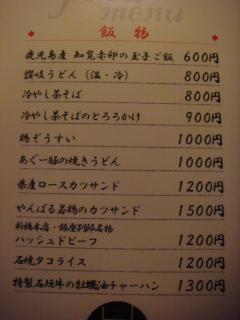 menu
飯物
鹿児島産 知覧赤卵の玉子ご飯 600円
讃岐うどん（温・冷） 800円
冷やし茶そば 800円
冷やし茶そばのとろろかけ 900円
鶏ぞうすい 1000円
あぐー豚の焼きうどん 1000円
県産ロースカツサンド 1200円
やんばる若鶏のカツサンド 1500円
新橋本店・銀座別邸名物
ハッシュドビーフ 1200円
石焼タコライス 1200円
特製石垣牛の牡蠣油チャーハン 1300円